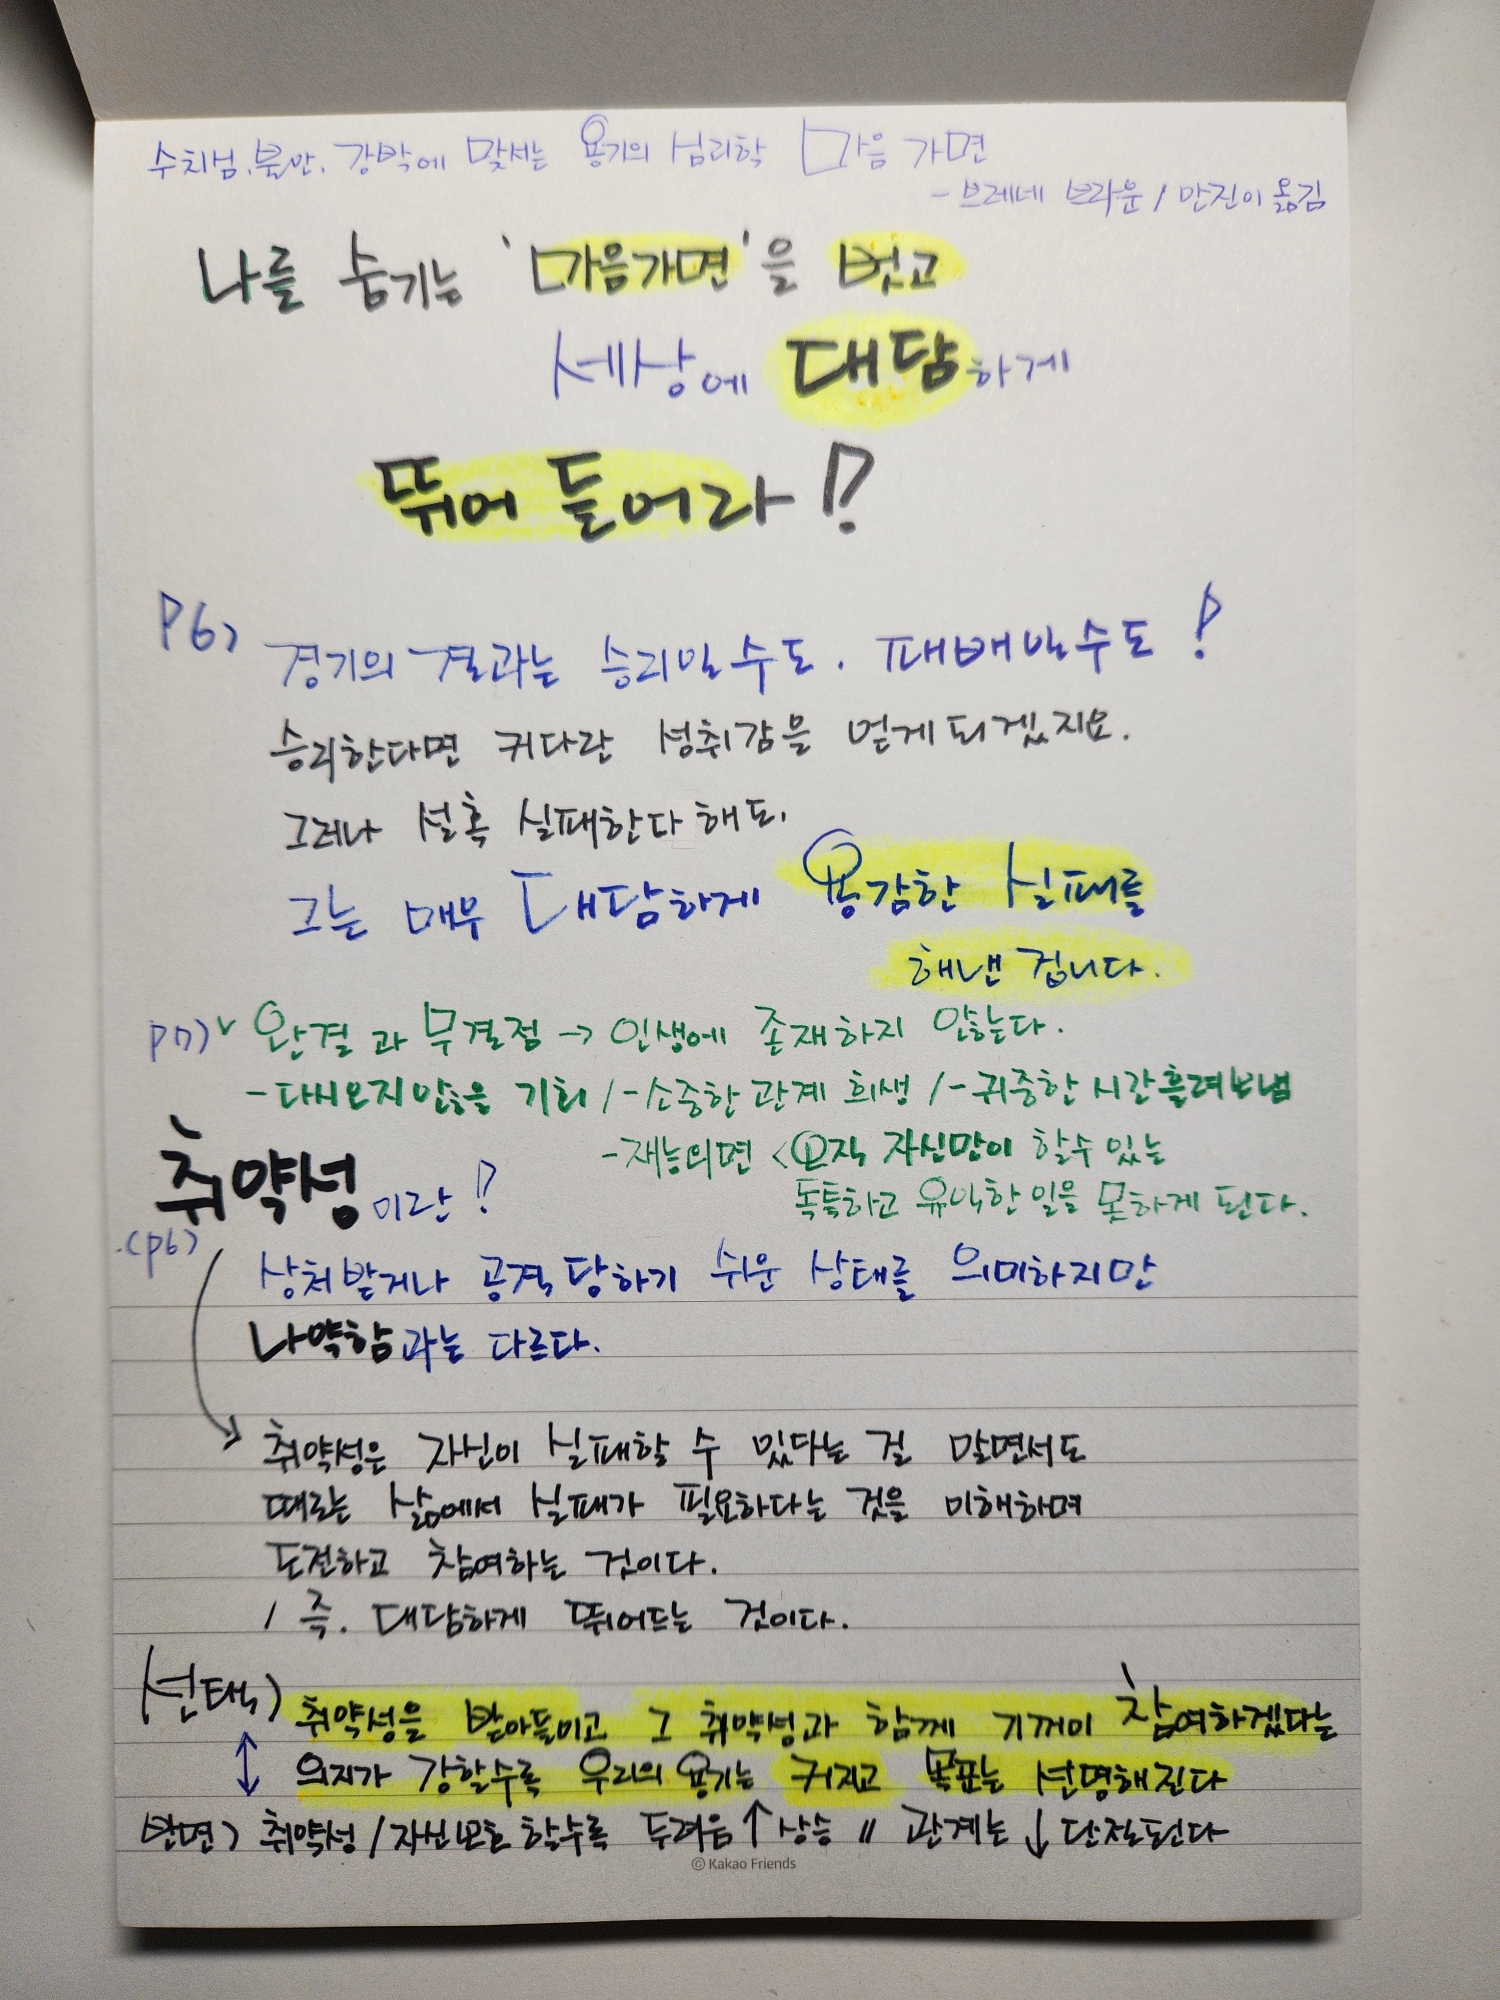 수치심, 불안, 강박에 맞서는 용기의 심리학 마음 가면
- 브레네 브라운 / 안진이 옮김
나를 숨기는 '마음가면'을 벗고
세상에 대담하게
뛰어 들어라!?
P6> 경기의 결과는 승리일 수도, 패배일 수도!
승리한다면 커다란 성취감을 얻게 되겠지요.
그러나 설혹 실패한다 해도,
그는 매우 대담하게 용감한 실패를
해낸 겁니다.
P7> v 완결과 무결점 → 인생에 존재하지 않는다.
- 다시오지않을 기회 / - 소중한 관계 희생 / - 귀중한 시간흘려보냄
- 재능외면 < 오직 자신만이 할수 있는
독특하고 유익한 일을 못하게 된다.
취약성이란!?
(p6>
상처받거나 공격 당하기 쉬운 상태를 의미하지만
나약함과는 다르다.
취약성은 자신이 실패할 수 있다는 걸 알면서도
때로는 삶에서 실패가 필요하다는 것을 이해하며
도전하고 참여하는 것이다.
/ 즉. 대담하게 뛰어드는 것이다.
(선택) 취약성을 받아들이고 그 취약성과 함께 기꺼이 참여하겠다는
의지가 강할수록 우리의 용기는 커지고 목표는 선명해진다
반면> 취약성 / 자신보호 할수록 두려움 ↑ 상승 // 관계는 ↓ 단절된다
© Kakao Friends